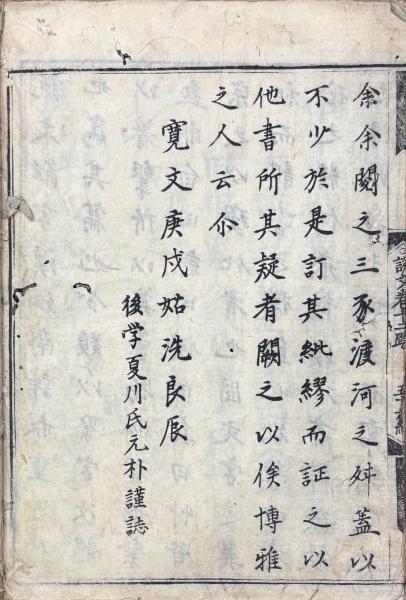 余余閱之三豕渡河之舛蓋以
不少於是訂其紕繆而証之以
他書所其疑者闕之以俟博雅
之人云尒
寛文庚戌姑洗良辰
後学夏川氏元朴謹誌
說文卷十二